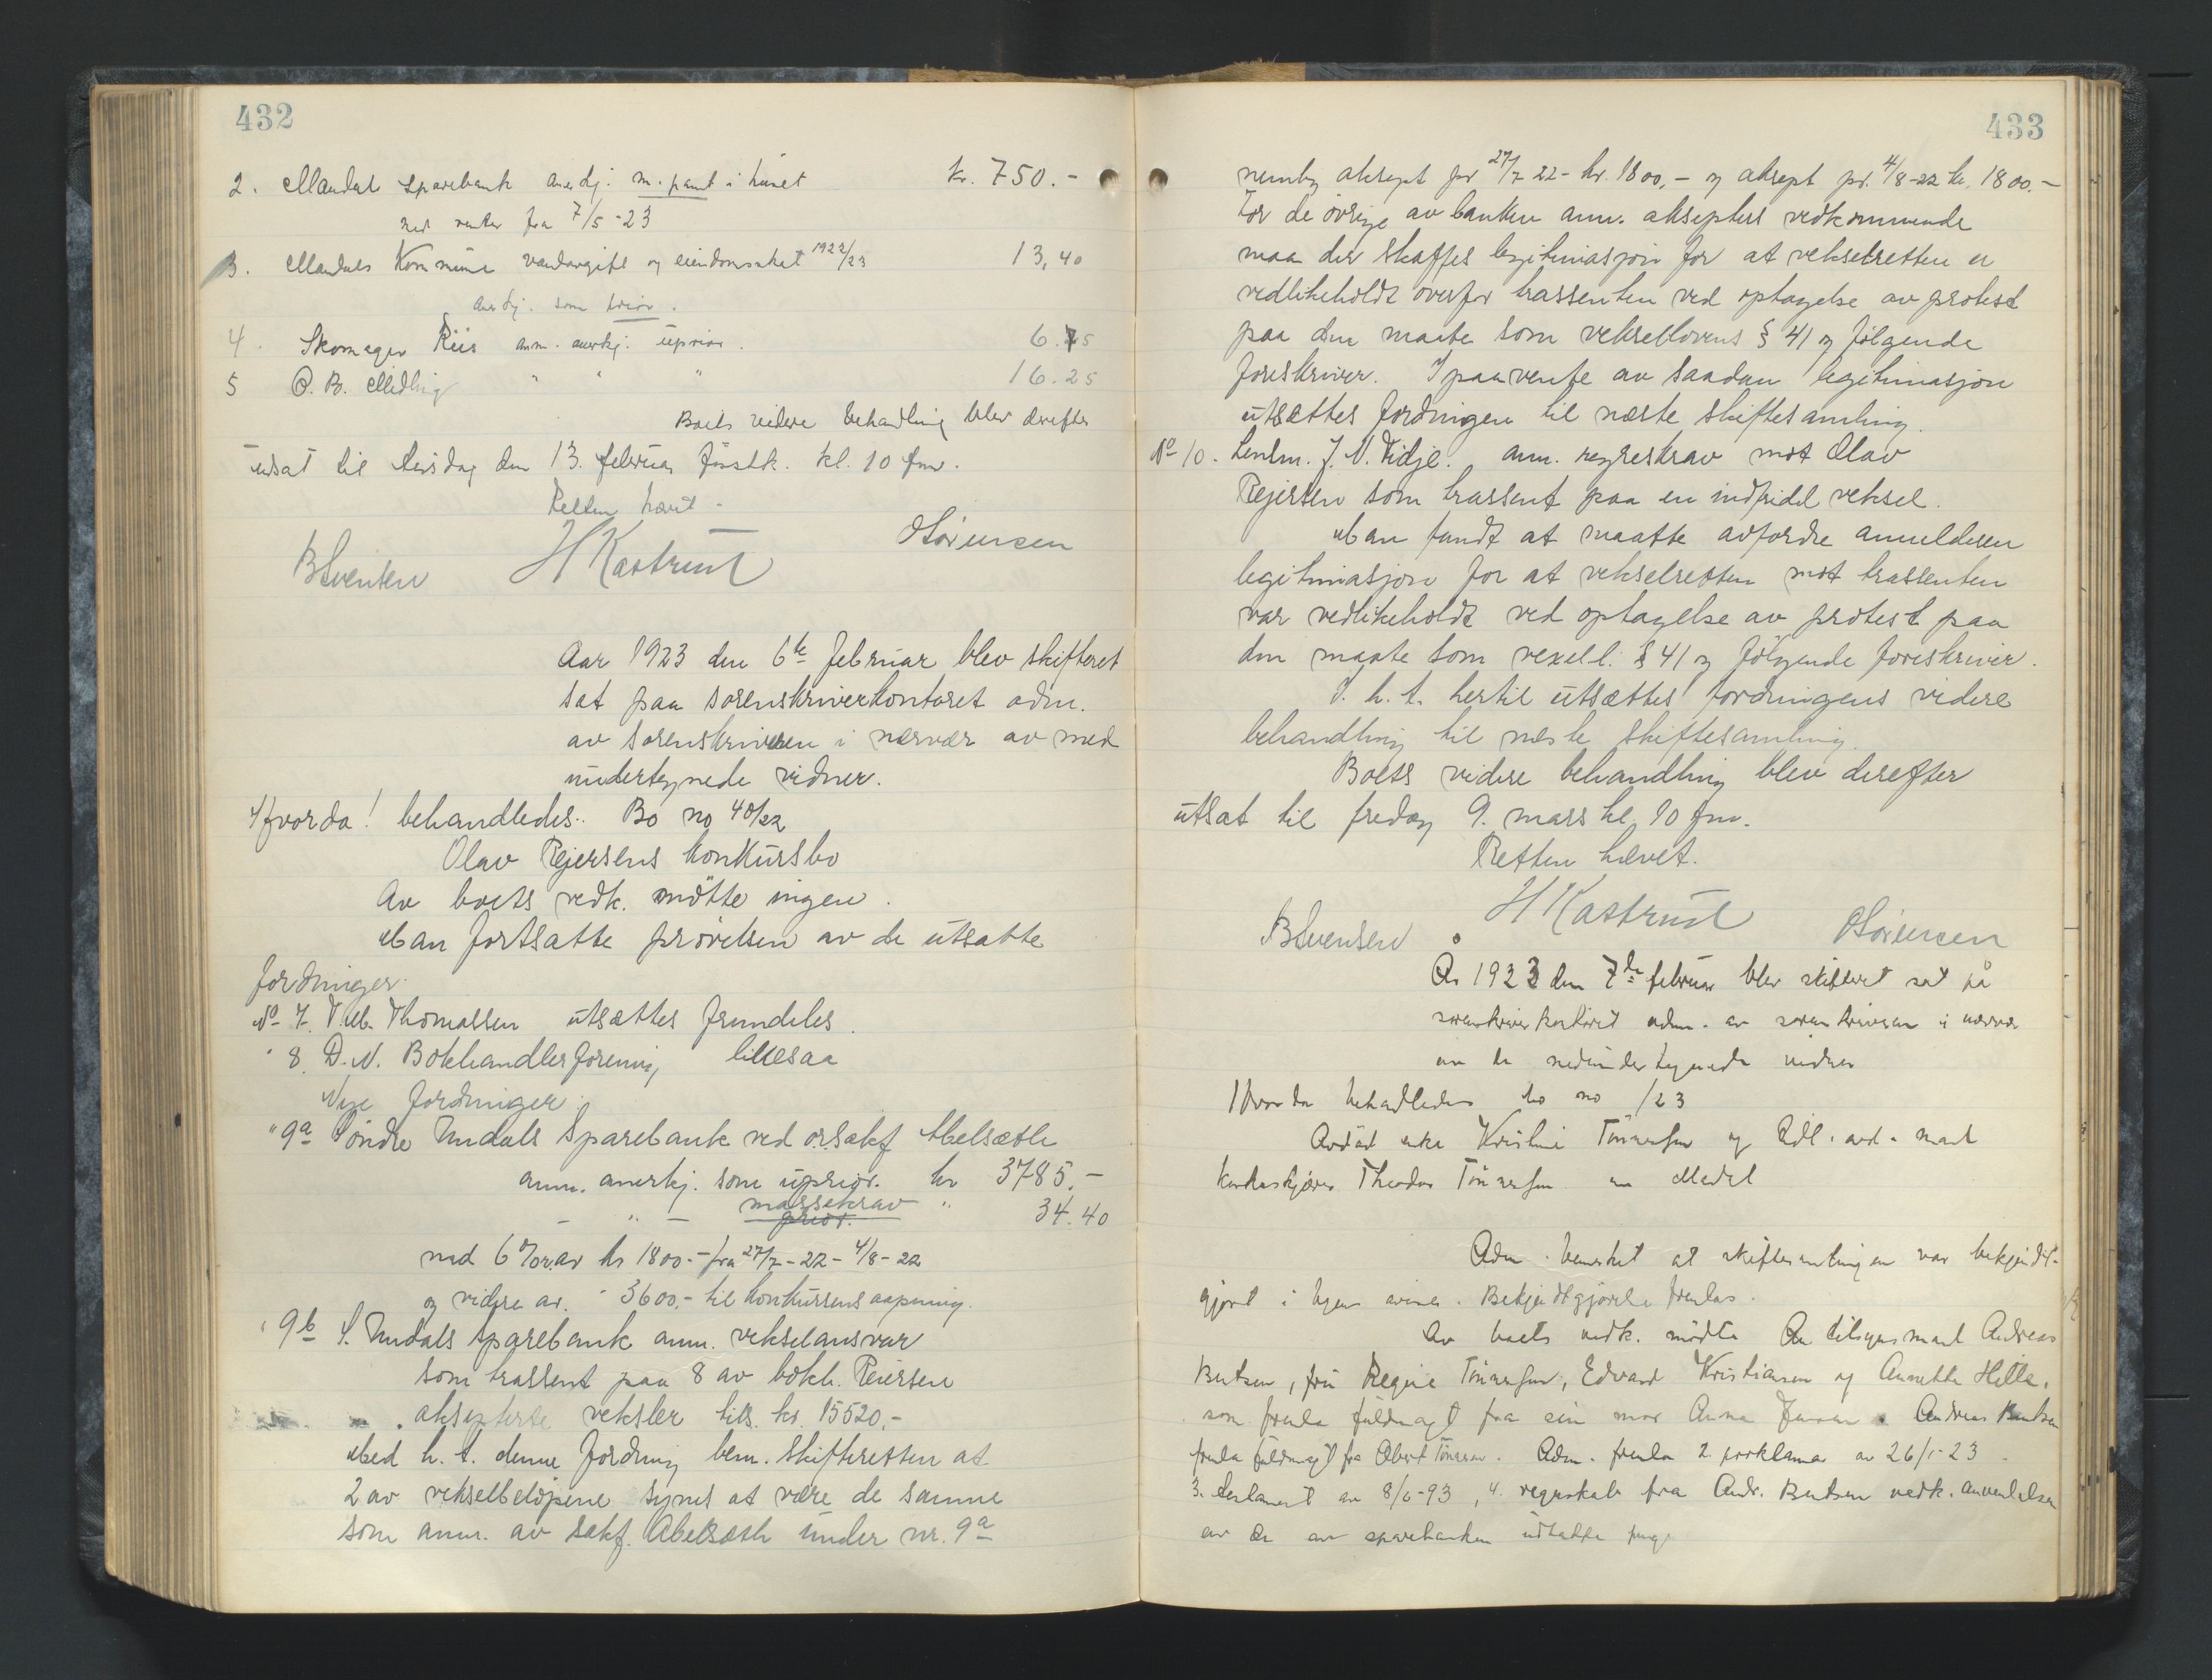 432
2. Mandal sparebank anerkj. m. pant i huset kr. 750.-
med renter fra 7/5-23
3. Mandals Kommune vandavgift og eiendomsskat 1922/23 13,40
anerkj. som prior.
4. Skomager Riis anm. anerkj. uprior. 6.75
5 O. B. " " " 16.25
Boets videre behandling blev derefter
utsat til tirsdag den 13. februar førstk. kl. 10 fm.
Retten hævet -
BSvensen H Kastrud OSørensen
Aar 1923 den 6te februar blev skifteret
sat paa sorenskriverkontoret adm.
av sorenskriveren i nærvær av med
undertegnede vidner.
Hvorda! behandledes: Bo no 40/22
Olav Reiersens konkursbo
Av boets vedk. møtte ingen.
Man fortsatte prøvelsen av de utsatte
fordringer.
No 7. T. M. Thomassen utsættes fremdeles.
" 8. D. N. Bokhandlerforening likesaa
Nye fordringer:
" 9a Søndre Undals Sparebank ved o.r.sakf. Abelsæth
anm. anerkj. som uprior. kr 3785.-
- " - massekrav " 34.40
prior.
med 6% av kr 1800.- fra 27/7-22 - 4/8-22
og videre av. " 3600.- til konkursens aapning.
" 9b S. Undals sparebank anm. vekselansvar
som trassent paa 8 av bokh. Reiersen
aksepterte veksler tils. kr. 15520.-
Med h. t. denne fordring bem. skifteretten at
2 av vekselbeløpene synes at være de samme
som anm. av sakf. Abelsæth under nr. 9a
433
nemlig aksept pr 27/7 22 - kr. 1800,- og aksept pr. 4/8-22 kr. 1800.-
For de øvrige av banken anm. aksepters vedkommende
maa der skaffes legitimasjon for at vekselretten er
vedlikeholdt overfor trassenten ved optagelse av protest
paa den maate som veksellovens § 41 og følgende
foreskriver. I paavente av saadan legitimasjon
utsættes fordringen til næste skiftesamling.
No 10. Lensm. J. N. Vidje. anm. regreskrav mot Olav
Reiersen som trassent paa en indfridd veksel.
Man fandt at maatte avfordre anmelderen
legitimasjon for at vekselretten mot trassenten
var vedlikeholdt ved optagelse av protest paa
den maate som vexell. § 41 og følgende foreskriver.
I. h. t. hertil utsættes fordringens videre
behandling til næste skiftesamling.
Boets videre behandling blev derefter
utsat til fredag 9. mars kl. 10 fm.
Retten hævet.
BSvensen H Kastrud OSørensen
År 1923 den 7de februar blev skifteret sat på
sorenskriverkontoret adm. av sorenskriveren i nærvær
av de nedundertegnede vidner
Hvorda behandledes bo no /23
Avdød enke Kristine Tønnesen og mand
Theodor Tønnesen av Mandal
Adm. bemerket at skiftesamlingen var bekjendt-
gjort i byens aviser. Bekjendtgjørelse fremlas.
Av boets vedk. mødte Andreas
Bentsen, fru Regine Tønnesen, Edvard Kristiansen og Annette Hille,
som fremla fuldmagt fra sin mor Anna Andreas Bentsen
fremla fuldmagt fra Albert Tønnesen. Adm. fremla 2. proklama av 26/1-23.
3. testament av 8/6-93, 4. regnskab fra Andr. Bentsen vedk. anvendelsen
av de av sparebanken udtatte penge